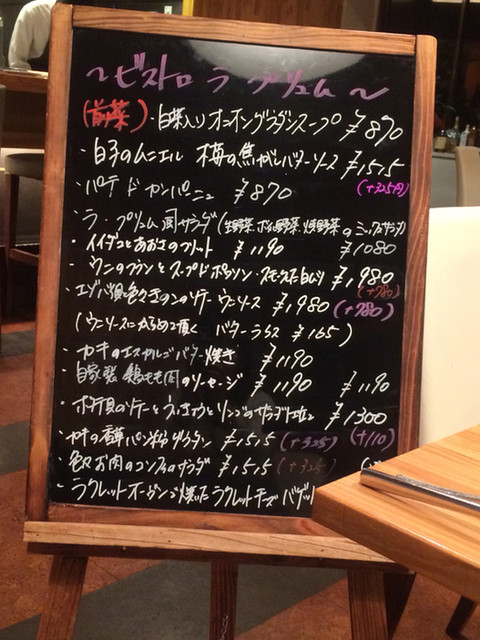 ～ビストロ ラ プリュム～
(前菜)・白菜入りオニオングラタンスープ ¥870
・白子のムニエル 梅の焦がしバターソース ¥1515
(+325円)
・パテ ド カンパーニュ ¥870
・ラ・プリュム風サラダ(生野菜 ボイル野菜 焼野菜のミックスサラダ)
¥1080
・イイダコとあおさのフリット ¥1190
・ウニのフランとスープドポワソン スモークした白しり ¥1,980
(+780)
・エゾバイ貝と色々きのこのソテー ウニソース ¥1,980 (+780)
(ウニソースにからめて頂く バターライス ¥165)
・カキのエスカルゴバター焼き ¥1190
・自家製 鶏もも肉のソーセージ ¥1190 ¥1190
・ホタテ貝のソテーとういきょうとリンゴのサラダ仕立 ¥1300
・カキの香草パン粉グラタン ¥1515 (+325) (+110)
・色々お肉のコンフィのサラダ ¥1515 (+325)
・ラクレットオーブンで焼いたラクレットチーズ バゲット